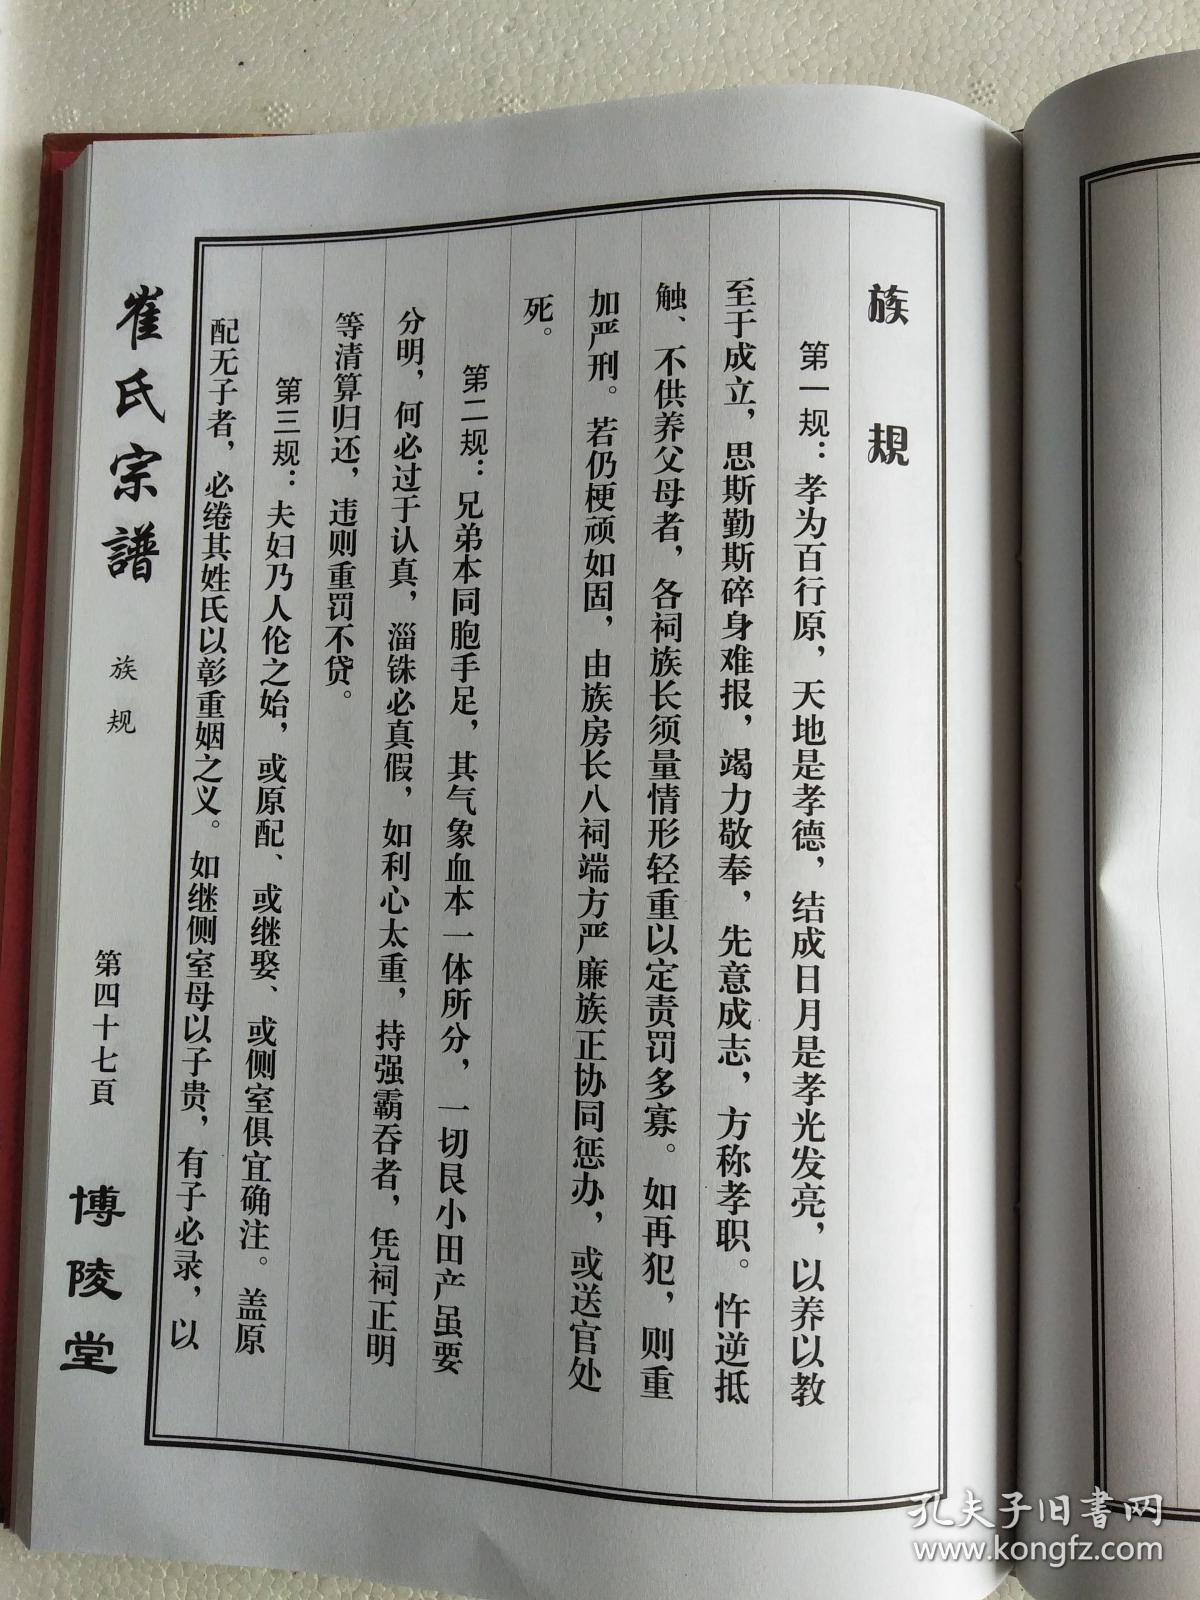 族规
第一规：孝为百行原，天地是孝德，结成日月是孝光发亮，以养以教
至于成立，思斯勤斯碎身难报，竭力敬奉，先意成志，方称孝职。忤逆抵
触、不供养父母者，各祠族长须量情形轻重以定责罚多寡。如再犯，则重
加严刑。若仍梗顽如固，由族房长八祠端方严廉族正协同惩办，或送官处
死。
第二规：兄弟本同胞手足，其气象血本一体所分，一切艮小田产虽要
分明，何必过于认真，淄铢必真假，如利心太重，持强霸吞者，凭祠正明
等清算归还，违则重罚不贷。
第三规：夫妇乃人伦之始，或原配、或继娶、或侧室俱宜确注。盖原
配无子者，必绻其姓氏以彰重姻之义。如继侧室母以子贵，有子必录，以
崔氏宗譜
族规
第四十七頁
博陵堂
孔夫子旧书网
www.kongfz.com